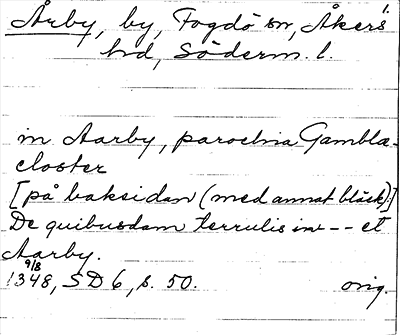 Årby, by, Fogdö sn, Åkers 1.
hd, Söderm. l.
in Aarby, parochia Gamblæ-
closter
[på baksidan (med annat bläck):]
De quibusdam terrulis in -- et
Aarby.
9/8
1348, SD 6, s. 50. orig.